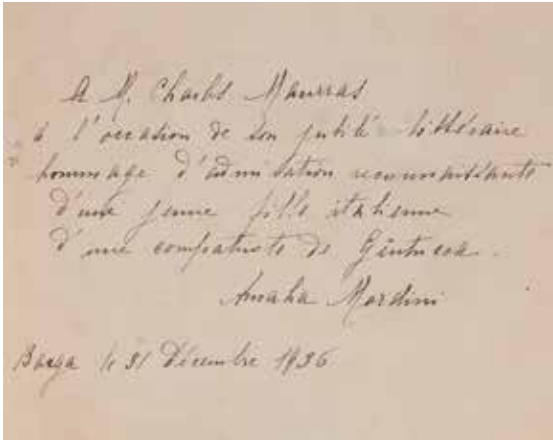 A M. Charles Maurras
à l'occasion de son jubilé littéraire
hommage d'admiration reconnaissante
d'une jeune fille italienne
d'une compatriote de
Amalia Mordini
Barga le 31 Décembre 1936